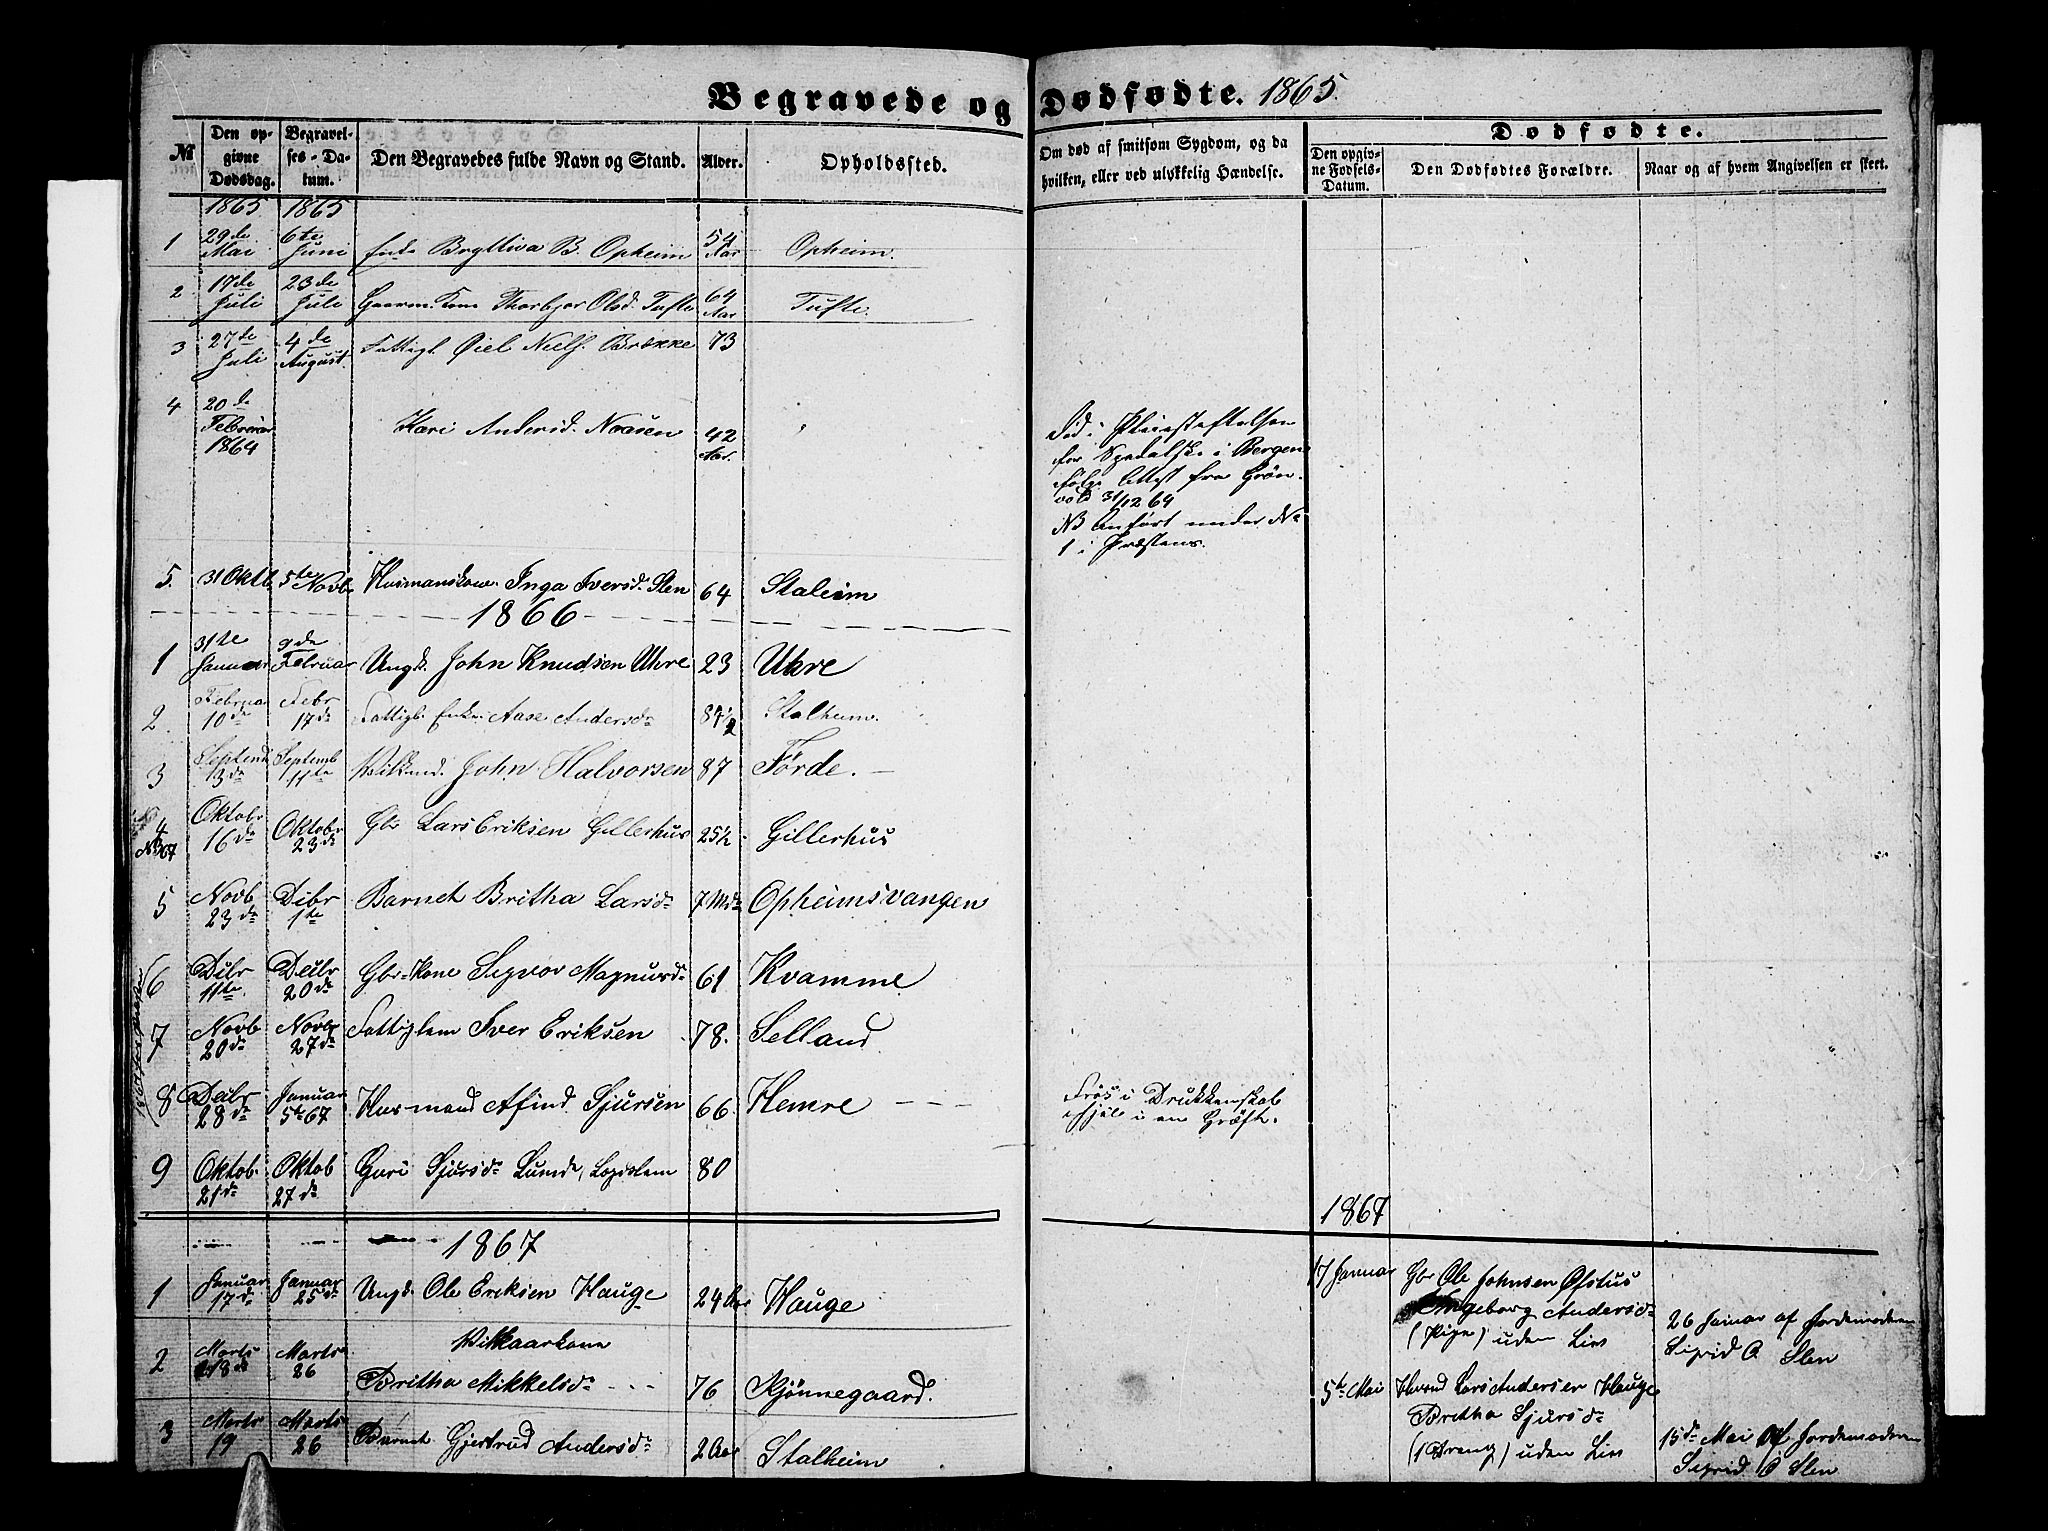 Begravede og Dødfødte. 1865.
Dødfødte.
№ Den opgivne Dødsdag. Begravelses-Datum. Den Begravedes fulde Navn og Stand. Alder. Opholdssted. Om død af smitsom Sygdom, og da hvilken, eller ved ulykkelig Hændelse. Den opgivne Fødsels-Datum. Den Dødfødtes Forældre. Naar og af hvem Angivelsen er skeet.
1865 1865
1 29de Mai 6te Juni Enke Bryttiva B. Opheim 54 Aar Opheim.
2 17de Juli 23de Juli Gaarm. Kone Thorbjør Olsd. Tufte 64 Aar Tufte.
3 27de Juli 4de August Fattigl. Niels. Brække 73
4 20de Februar 1864 Kari Andersd. Naasen 42 Aar.
Død i Pleiestiftelsen
for Spedalske i Bergen
ifølge Attest fra Grøn
vold 31/12 64
NB Anført under No
1 i Præstens.
5. 31 Oktb. 5te Novb Husmandskone Inga Iversd. Slen 64 Staleim
1866
1 31te Januar 9de Februar Ungk. John Knudsen Uhre 23 Uhre
2. Februar 10de Febr 17de Fattigl. Enke Aase Andersdr 87½ Stalheim.
3 Septemb 3de Septemb 11te Vilkmd. John Halvorsen 87 Førde.
4 Oktobr 16de Oktobr 23de Gbr Lars Eriksen Gillerhus 25½ Gillerhus
5 Novb 23de Dcbr 1te Barnet Britha Larsdr 7 Mdr Opheimsvangen
6 Dcbr 11te Decbr 20de Gbr-Kone Sigvor Magnusdr 61 Kvamme
7 Novb 20de Novbr 27de Fattiglem Iver Eriksen 78. Selland
8 Decbr 28de Januar 5te 67 Husmand Afind Sjursen 66 Hemre
Frøs i Drukkenskab
ihjel i en Grøft.
9 Oktob. 21de Oktob 27de Guri Sjursdr Lunde, Lægslem 80
1867
1867
1 Januar 17de Januar 25de Ungk. Ole Eriksen Hauge 24 Aar Hauge
17 Januar Gbr Ole Johnsen Øfstus
Ingeborg Andersdr
(Pige) uden Liv
26 Januar af Jordemoderen
Sigrid O Slen
2 Marts 18de Marts 26 Vilkaarkone
Britha Mikkelsdr 76 Kjønnegaard.
5te Mai Husmd Lars Andersen Hauge
Britha Sjursdr
(1 Dreng) uden Liv
15de Mai af Jordemoderen
Sigrid O Slen
3 Marts 19 Marts 26 Barnet Gjertrud Andersdr 2 Aar Stalheim